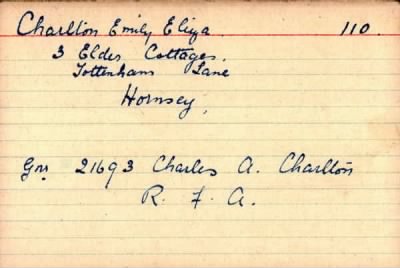 Charlton Emily Eliza. 110.
3 Elder Cottages,
Tottenham Lane
Hornsey,
Gnr 21693 Charles A. Charlton
R. F. A.